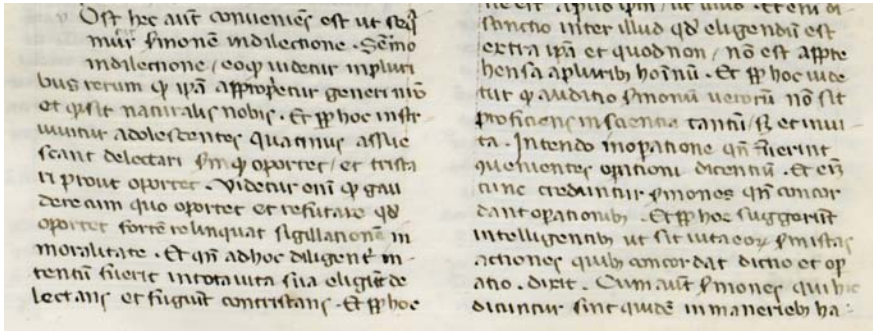 Ost hec aut̄ conueniēs est ut seq̄
mur ẜmonē in dilectione. Sermo
in dilectione / eo qꝫ uidetur in pluri
bus rerum qꝫ ip̄a approp̄etur generi nr̄o
et qꝫ sit naturalis nobis. Et ꝓp̱ hoc instr
uuntur adolescentes quatinus assue
scant delectari ẜm qꝫ oportet / et trista
ri prout oportet. Videtur eni qꝫ gau
dere cum quo oportet et refutare qd̄
oportet fortē relinquat sigillationē in
moralitate. Et qn̄ ad hoc diligent̄ in
tentū fuerit in tota uita sua eligūt de
lectans et fugiūt contristans. Et ꝓp̱ hoc
stinctio inter illud qd̄ eligendū est
extra ip̄m et quod non / nō est appre
hensa a pluribꝫ hoīnū. Et ꝓp̱ hoc uide
tur qꝫ auditio ẜmonū uerorū nō sit
proficiens in scientia tantū / sꝫ et in ui
ta. Intendo in opatione qn̄ fuerint
ꝯuenientes opationi dicentiū. Et eni
tunc creduntur ẜmones qn̄ concor
dant opationibꝫ. Et ꝓp̱ hoc suggerūt
intelligentibꝫ ut sit uita eoꝝ ẜm istas
actiones quibꝫ concordat dictio et op
atio. dixit. Cum aut̄ ẜmones qui hic
dicuntur sint quidē in maneriebꝫ ha